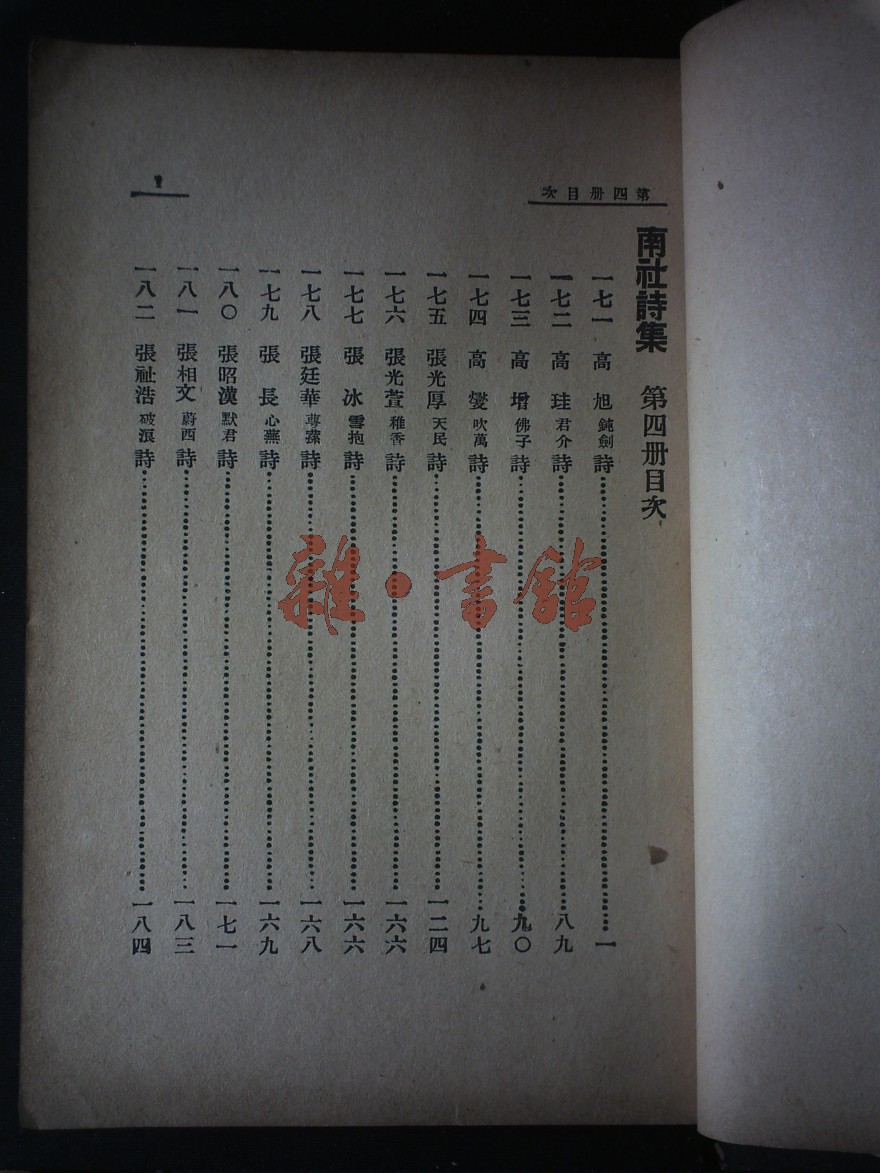 第四册目次
南社詩集 第四册目次
一七一 高旭 鈍劍 詩 一
一七二 高珪 君介 詩 八九
一七三 高增 佛子 詩 九〇
一七四 高燮 吹萬 詩 九七
一七五 張光厚 天民 詩 一二四
一七六 張光萱 稚香 詩 一六六
一七七 張冰 雪抱 詩 一六六
一七八 張廷華 詩 一六八
一七九 張長 心蕪 詩 一六九
一八〇 張昭漢 默君 詩 一七一
一八一 張相文 蔚西 詩 一八三
一八二 張祉浩 破浪 詩 一八四
雜·書館